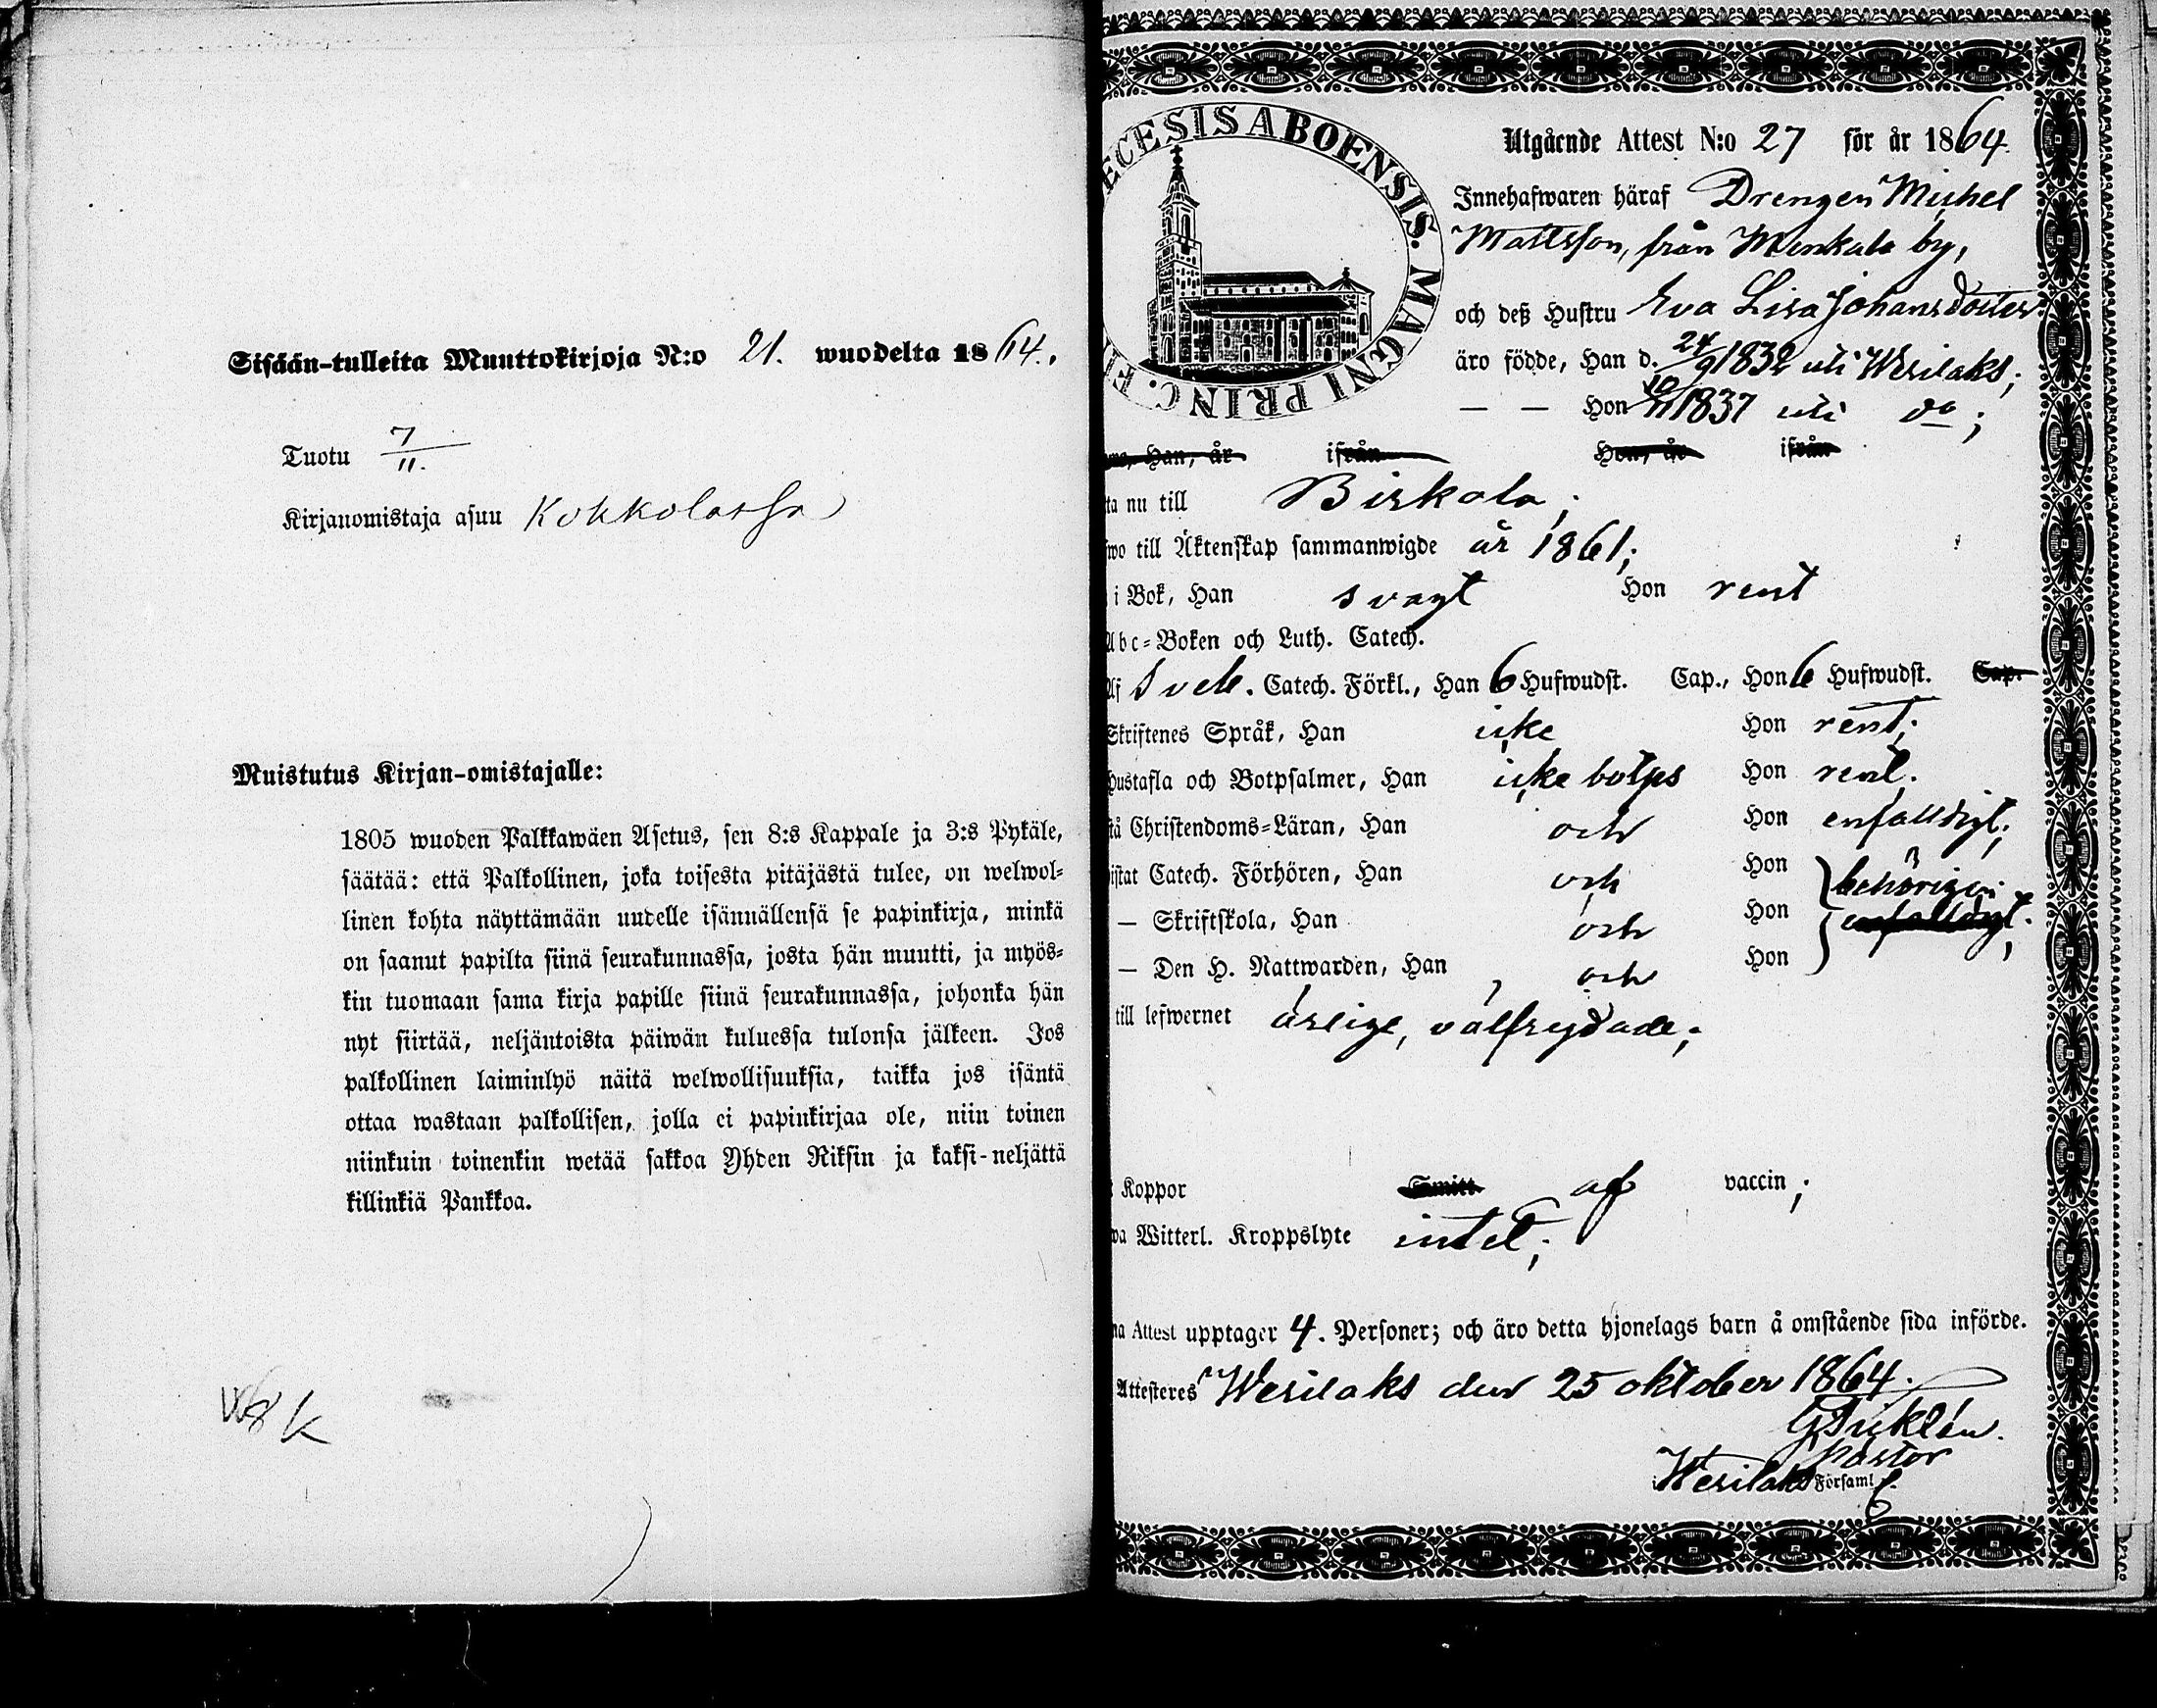 Sisään-tulleita Muuttokirjoja N:o 21. wuodelta 1864.
Tuotu 7/11.
Kirjanomistaja asuu Kokkolassa
Muistutus Kirjan-omistajalle:
1805 wuoden Palkkawäen Asetus, sen 8:s Kappale ja 3:s Pykäle,
säätää: että Palkollinen, joka toisesta pitäjästä tulee, on welwol-
linen kohta näyttämään uudelle isännällensä se papinkirja, minkä
on saanut papilta siinä seurakunnassa, josta hän muutti, ja myös-
kin tuomaan sama kirja papille siinä seurakunnassa, johonka hän
nyt siirtää, neljäntoista päiwän kuluessa tulonsa jälkeen. Jos
palkollinen laiminlyö näitä welwollisuuksia, taikka jos isäntä
ottaa wastaan palkollisen, jolla ei papinkirjaa ole, niin toinen
niinkuin toinenkin wetää sakkoa Yhden Riksin ja kaksi-neljättä
killinkiä Pankkoa.
ECESIS ABOENSIS. MAGNI PRINC. F
Utgående Attest N:o 27 för år 1864.
Innehafwaren häraf Drengen Michel
Mattsson, från Menkala by,
och deß Hustru Eva Lisa Johansdotter
äro födde, Han d. 24/9 1832 uti Wesilaks;
— — Hon 10/11 1837 uti do;
Han, år ifrån Hon, år ifrån
ta nu till Birkala;
wo till Äktenskap sammanwigde år 1861;
i Bok, Han svagt Hon rent
Abc-Boken och Luth. Catech.
Af Sveb. Catech. Förkl., Han 6 Hufwudst. Cap., Hon 6 Hufwudst. Cap.
Skriftenes Språk, Han icke Hon rent;
Hustafla och Botpsalmer, Han icke botps Hon rent.
stå Christendoms-Läran, Han och Hon enfalldigt;
istat Catech. Förhören, Han och Hon behörigen;
— Skriftskola, Han och Hon enfalldigt.
— Den H. Nattwarden, Han och Hon
till lefwernet ärlige, välfrejdade;
Koppor Smitt. af vaccin;
wa Witterl. Kroppslyte intet;
na Attest upptager 4. Personer; och äro detta hjonelags barn å omstående sida införde.
Attesteres Wesilaks den 25 oktober 1864.
Pastor
i Wesilaks Församl.